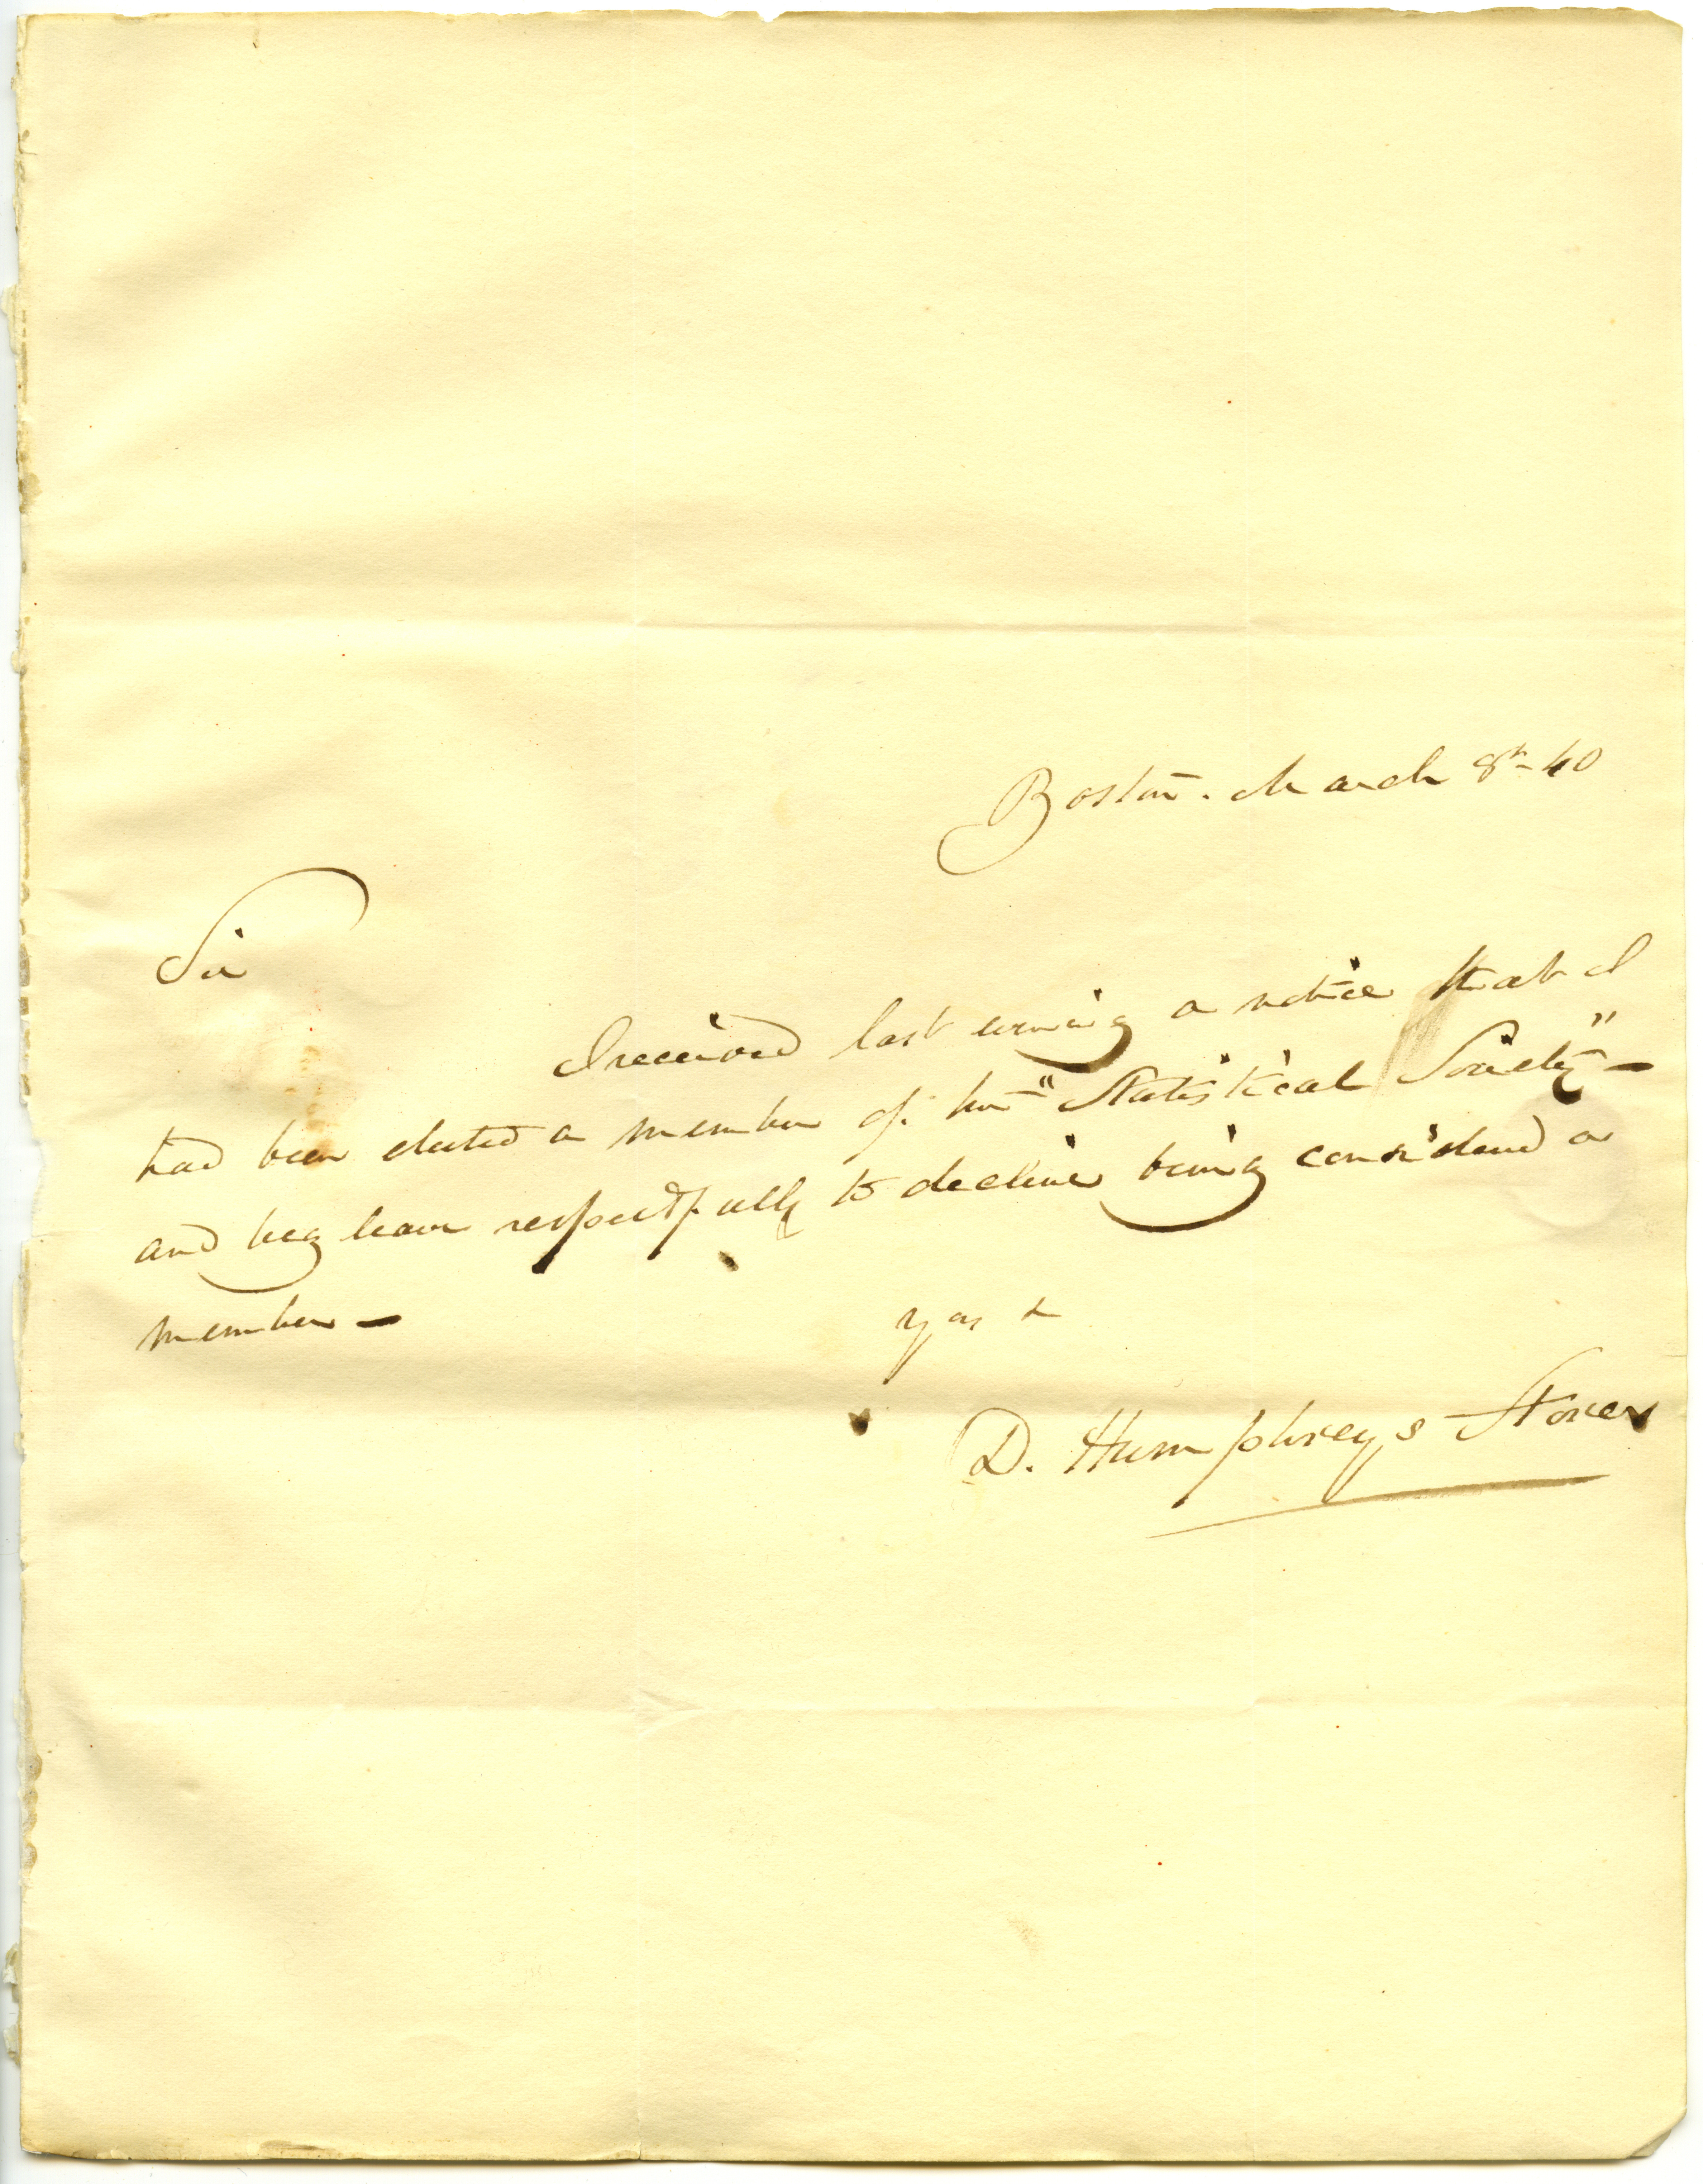 Boston. March 8th - 40
Sir
I received last evening a notice that I
had been elected a member of "Statistical Society" -
and beg leave respectfully to decline being considered a
member -
yrs &
D. Humphreys Storer